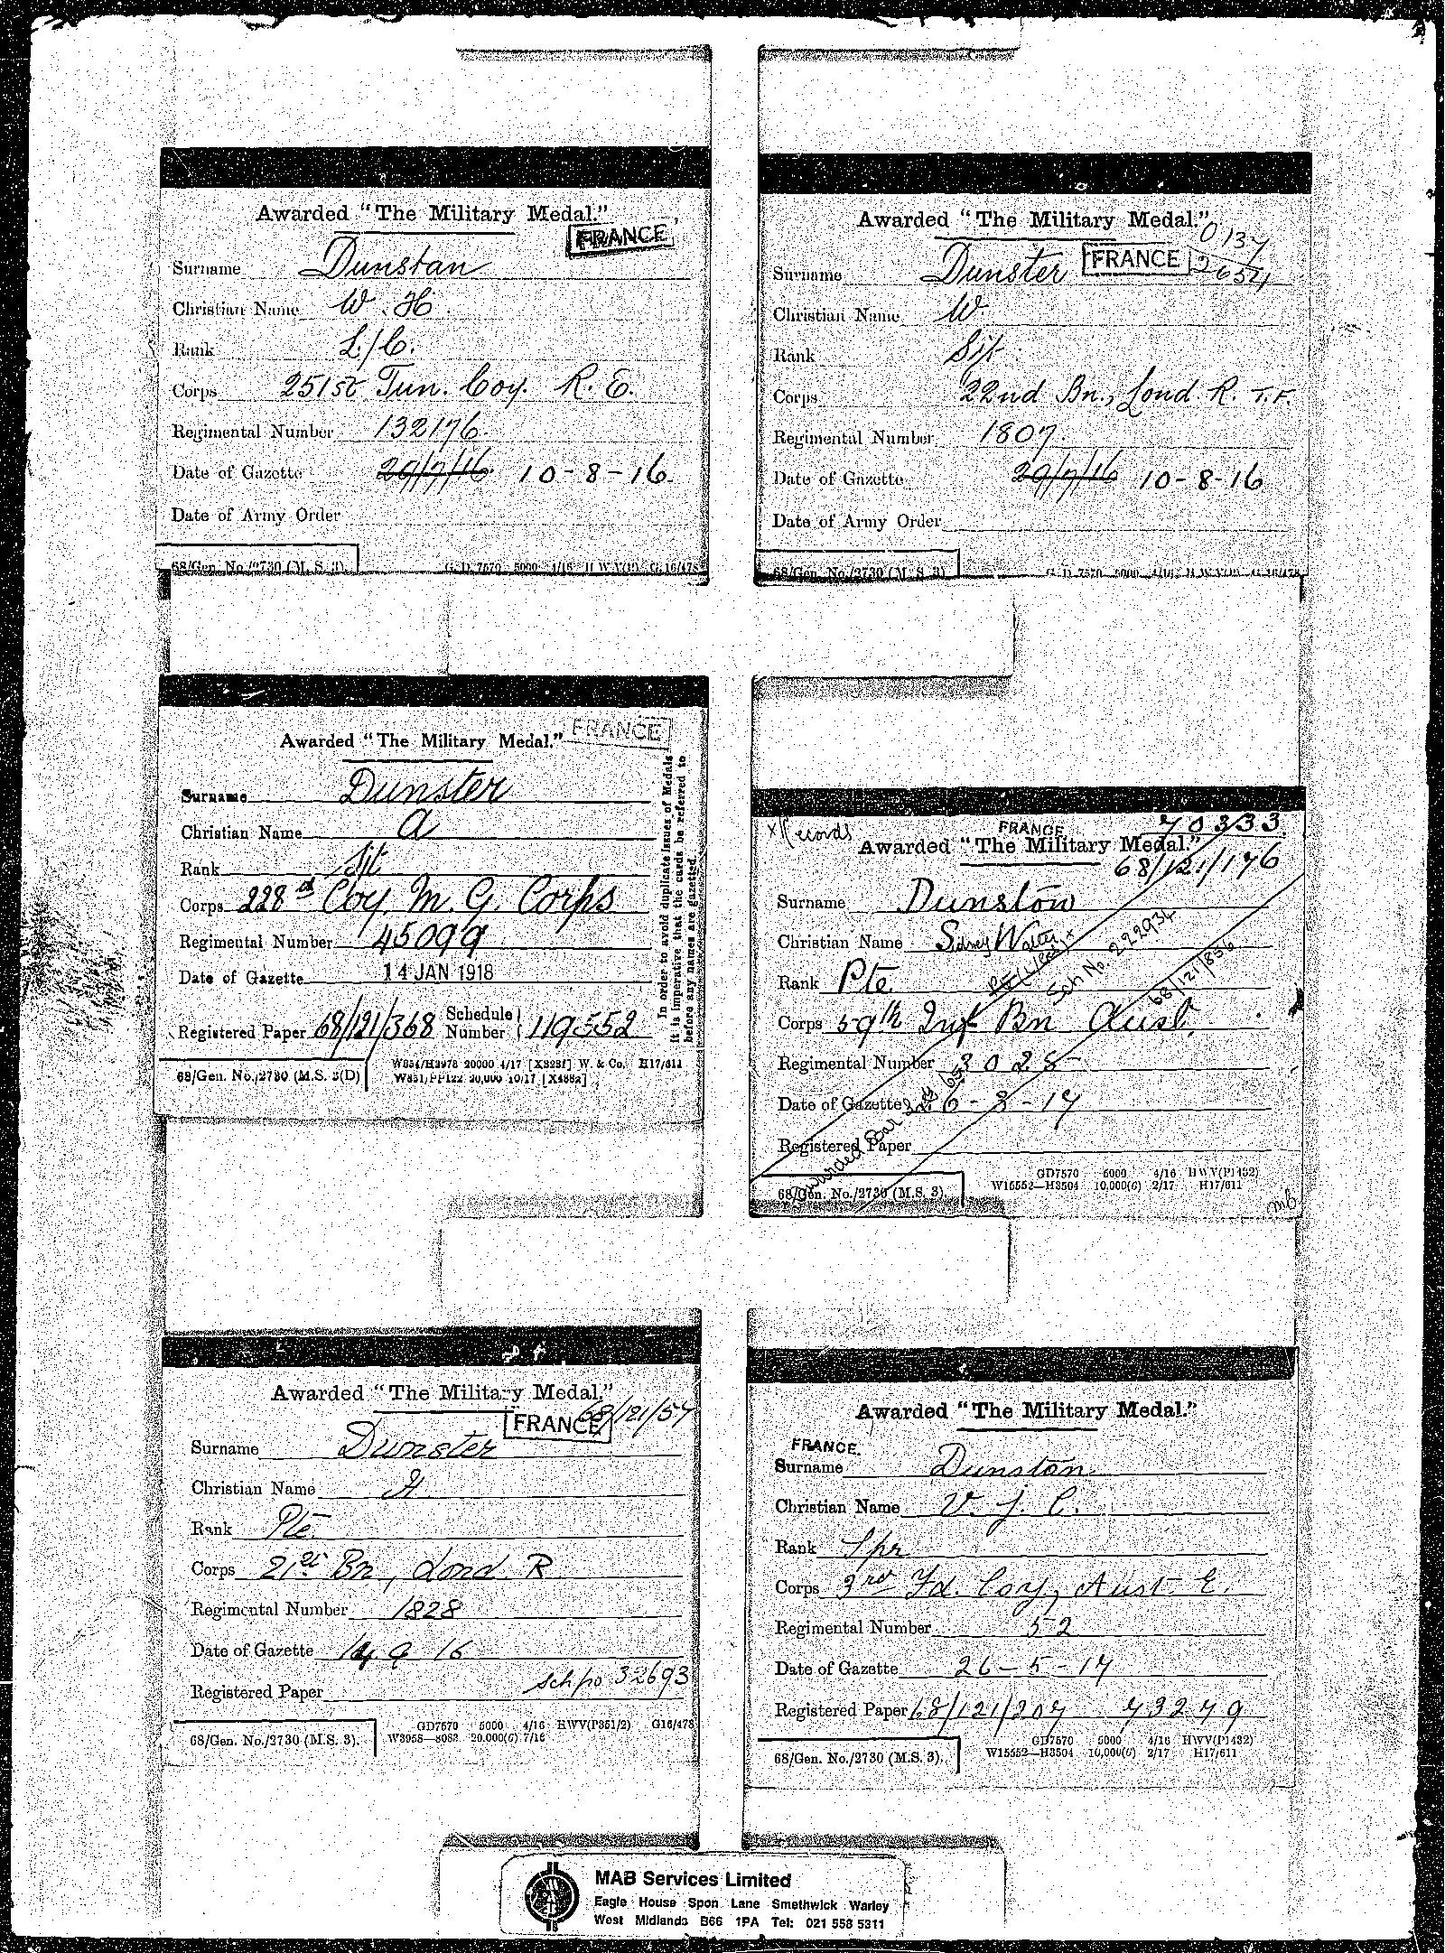 Awarded "The Military Medal."
FRANCE
Surname Dunstan
Christian Name W. H.
Rank L/C.
Corps 251st Tun. Coy. R. E.
Regimental Number 132176
Date of Gazette 29/7/16 10-8-16
Date of Army Order
68/Gen. No./2730 (M. S. 3).
G. D. 7570 5000 4/16 H W V(P) G 16/478
Awarded "The Military Medal."
0137
2654
FRANCE
Surname Dunster
Christian Name W.
Rank Sjt.
Corps 22nd Bn., Lond. R. T.F.
Regimental Number 1807.
Date of Gazette 29/7/16 10-8-16
Date of Army Order
68/Gen. No./2730 (M. S. 3)
G. D. 7570 5000 4/16 H W V(P) G 16/478
Awarded "The Military Medal."
FRANCE
Surname Dunster
Christian Name A
Rank Sjt
Corps 228th Coy. M. G. Corps
Regimental Number 45099
Date of Gazette 14 JAN 1918
Registered Paper 68/121/368 Schedule Number 119552
68/Gen. No./2730 (M.S. 3(D)
W854/H3978 20000 4/17 [X323f] W. & Co. H17/611
W851/PP122 20,000 10/17 [X488a]
In order to avoid duplicate issues of Medals
it is imperative that the cards be referred to
before any names are gazetted.
X Records
FRANCE
70333
Awarded "The Military Medal."
68/121/176
Surname Dunston
Christian Name Sidney Walter
Rank Pte
Sch No 222934
68/121/856
Corps 59th Inf Bn Aust.
Regimental Number 3028
Date of Gazette 26-3-17
Awarded Bar
Registered Paper
68/Gen. No./2730 (M.S. 3)
GD7570 5000 4/16 HWV(P1432)
W15552—H3504 10,000(6) 2/17 H17/611
Awarded "The Military Medal."
68/121/57
FRANCE
Surname Dunster
Christian Name H
Rank Pte
Corps 21st Bn, Lond. R
Regimental Number 1828
Date of Gazette 14 9 16
Sch no 32693
Registered Paper
68/Gen. No./2730 (M.S. 3).
GD7570 5000 4/16 HWV(P351/2) G16/478
W3958—8083 20.000(6) 7/16
Awarded "The Military Medal."
FRANCE.
Surname Dunston
Christian Name V. J. C.
Rank Spr
Corps 3rd Fd. Coy, Aust E.
Regimental Number 52
Date of Gazette 26-5-17
Registered Paper 68/121/207 73279
68/Gen. No./2730 (M.S. 3).
GD7570 5000 4/16 HWV(P1432)
W15552—H3504 10,000(6) 2/17 H17/611
MAB Services Limited
Eagle House Spon Lane Smethwick Warley
West Midlands B66 1PA Tel: 021 553 5311